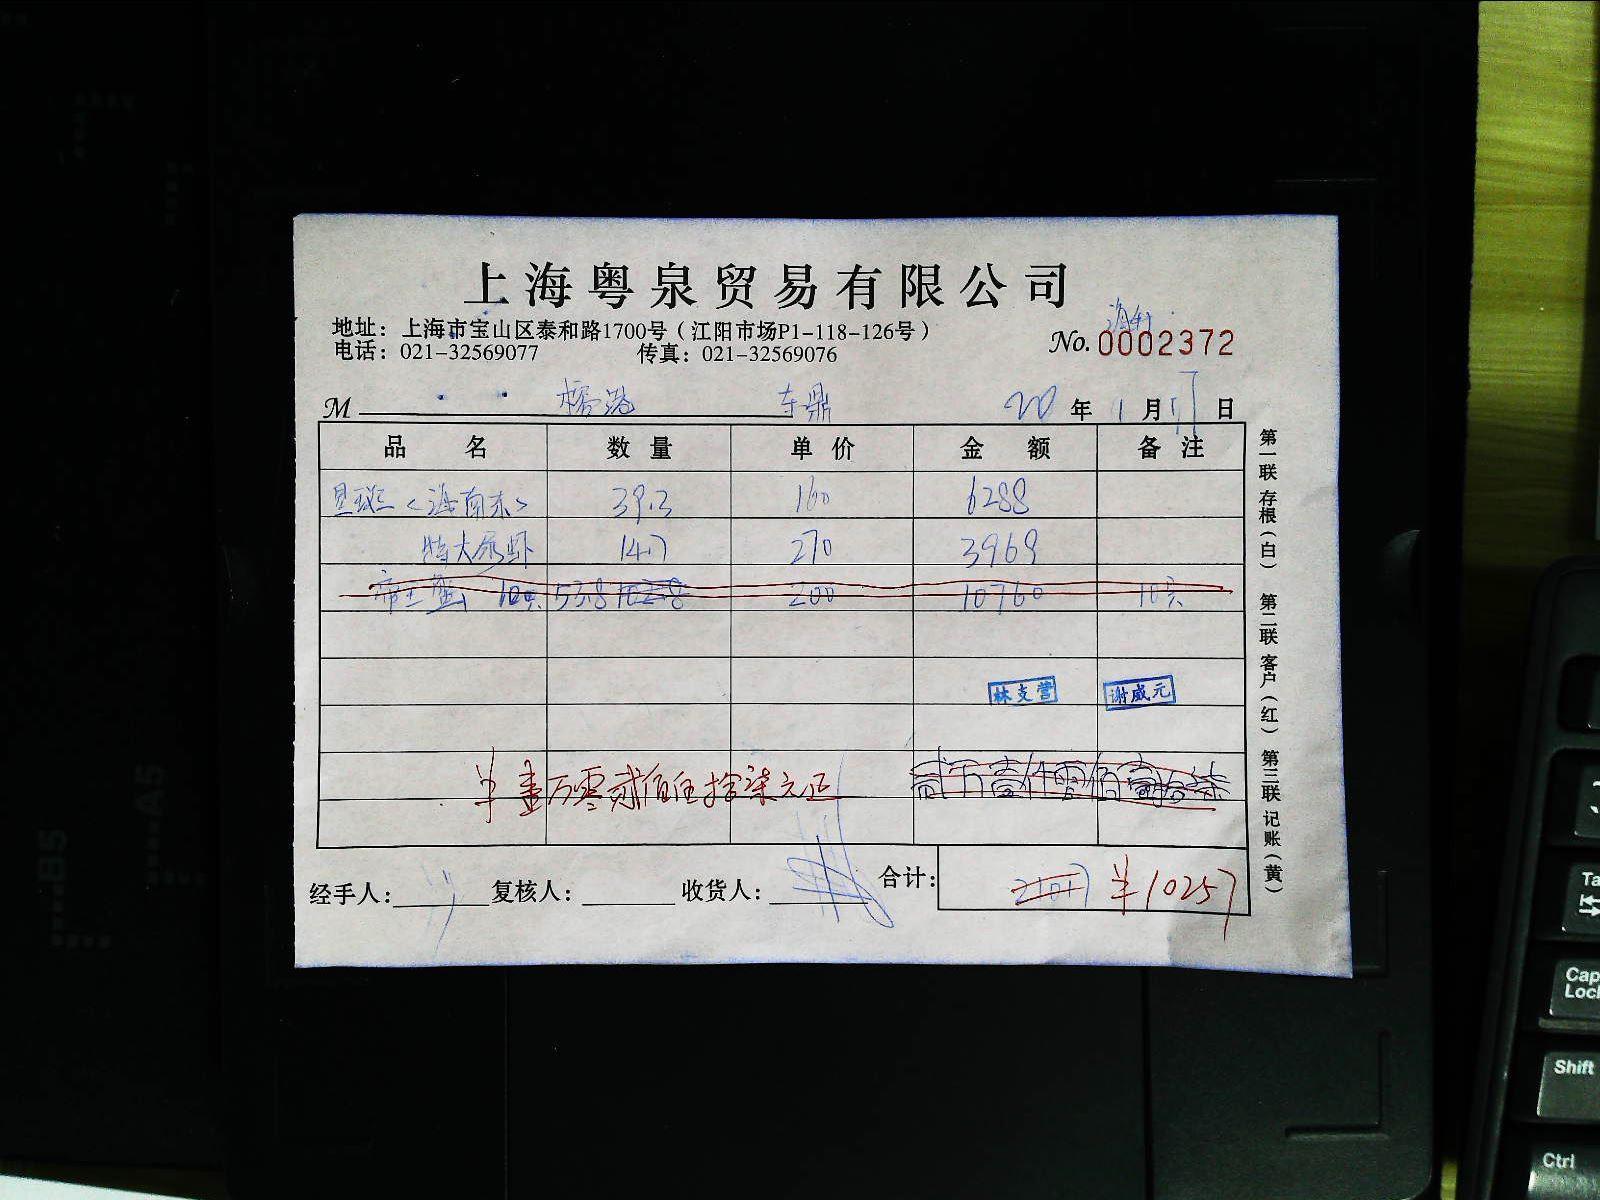 上海粤泉贸易有限公司
地址：上海市宝山区泰和路1700号（江阳市场P1-118-126号）
电话：021-32569077 传真：021-32569076
No. 0002372
M 20 年 1 月 日
品名 数量 单价 金额 备注
星斑<海南东> 39.3 160 6288
特大 虾 14.7 270 3969
帝王蟹 10只 53.8 200 10760 10只
林支营 谢威元
半壹万零贰佰伍拾柒元正 贰万壹仟零佰壹拾柒
经手人： 复核人： 收货人： 合计： 21017 半10257
第一联 存根（白） 第二联 客户（红） 第三联 记账（黄）
B5
A5
Tab
Caps Lock
Shift
Ctrl